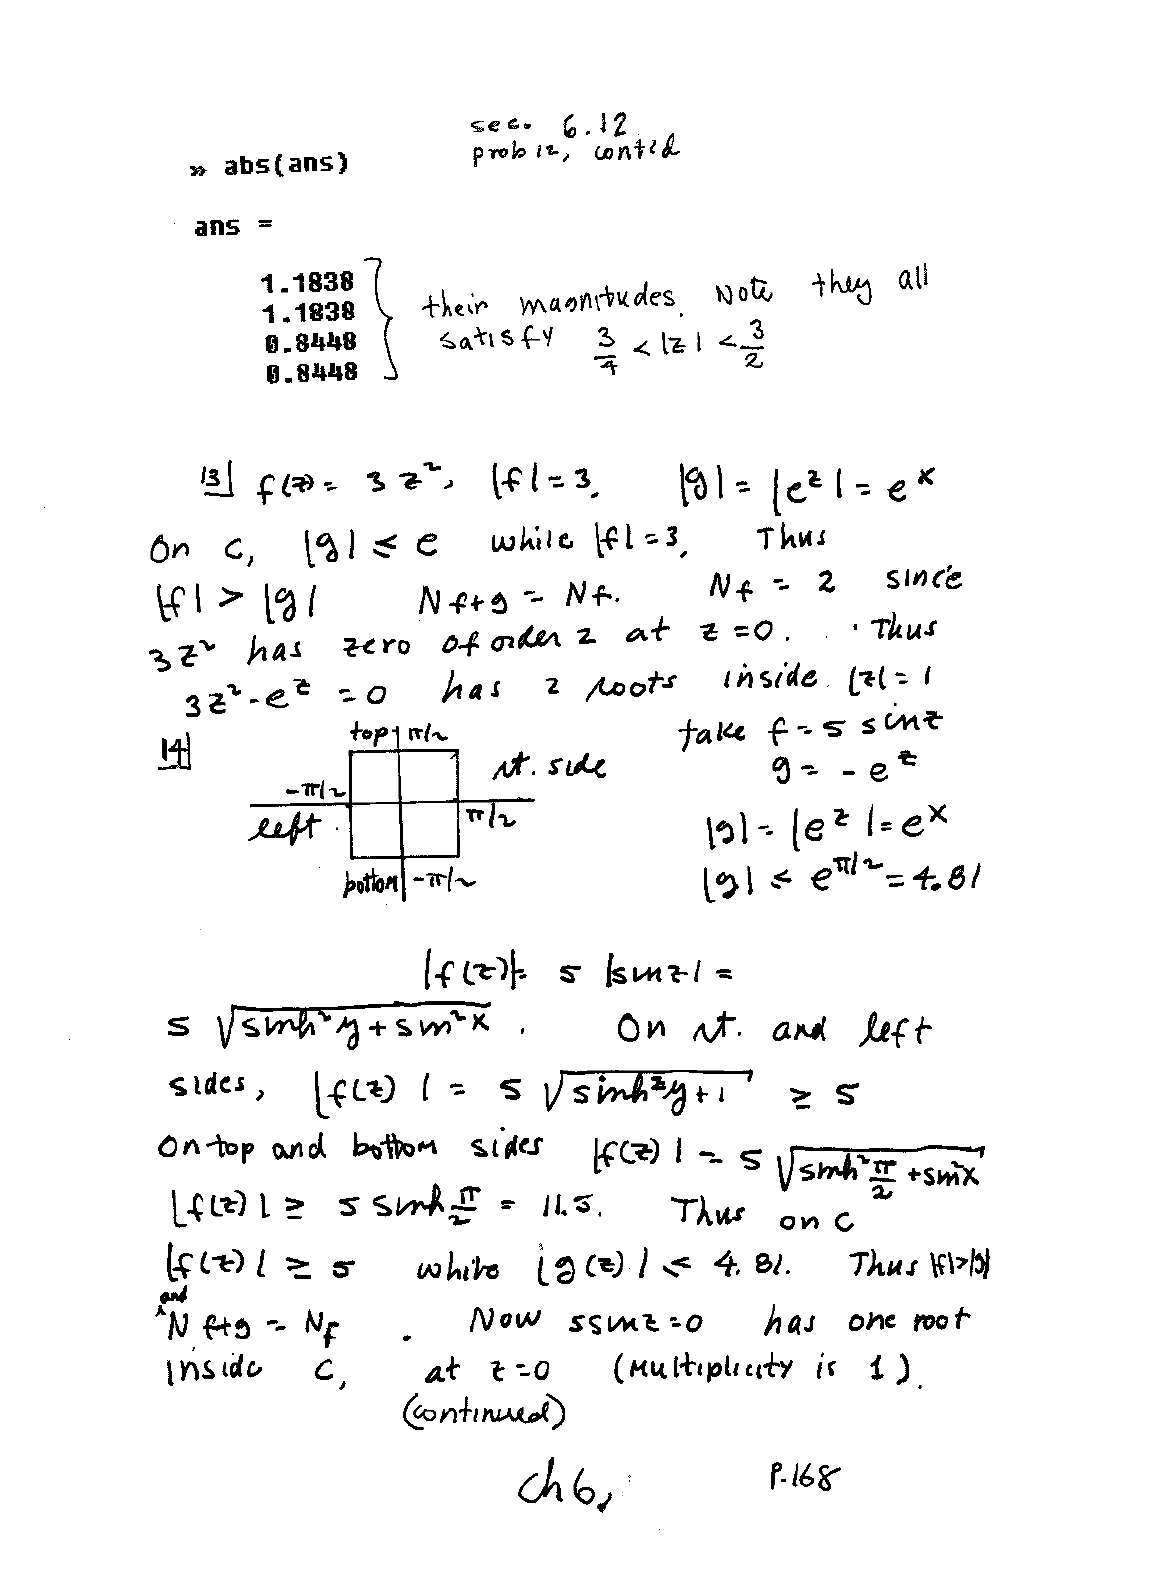 sec. 6.12
prob 12, cont'd
» abs(ans)
ans =
1.1838
1.1838
0.8448
0.8448
their magnitudes. Note they all
satisfy 3/4 < |z| < 3/2
13| f(z) = 3z², |f| = 3. |g| = |e^z| = e^x
On C, |g| ≤ e while |f| = 3. Thus
|f| > |g| N f+g = N f. N f = 2 since
3z² has zero of order 2 at z = 0. Thus
3z² - e^z = 0 has 2 roots inside |z| = 1
14|
top π/2
rt. side
-π/2
left
π/2
bottom -π/2
take f = 5 sin z
g = - e^z
|g| = |e^z| = e^x
|g| ≤ e^π/2 = 4.81
|f(z)| = 5 |sin z| =
5 √(sinh² y + sin² x) . On rt. and left
sides, |f(z)| = 5 √(sinh² y + 1) ≥ 5
On top and bottom sides |f(z)| = 5 √(sinh² π/2 + sin² x)
|f(z)| ≥ 5 sinh π/2 = 11.5. Thus on C
|f(z)| ≥ 5 while |g(z)| ≤ 4.81. Thus |f|>|g|
and N f+g = N f . Now 5 sin z = 0 has one root
inside C, at z = 0 (multiplicity is 1).
(continued)
Ch 6, P. 168